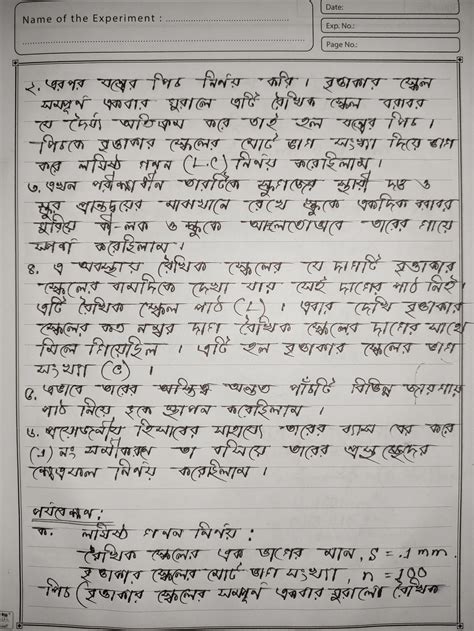 Name of the Experiment :
Date:
Exp. No.:
Page No.:
২. এরপর যন্ত্রের পিচ নির্ণয় করি । বৃত্তাকার স্কেল
সম্পূর্ণ একবার ঘুরালে এটি রৈখিক স্কেল বরাবর
যে দৈর্ঘ্য অতিক্রম করে তাই হল যন্ত্রের পিচ ।
পিচকে বৃত্তাকার স্কেলের মোট ভাগ সংখ্যা দিয়ে ভাগ
করে লঘিষ্ঠ গণন (L.C) নির্ণয় করেছিলাম ।
৩. এখন পরীক্ষাধীন তারটিকে স্ক্রুগজের স্থায়ী দন্ড ও
স্ক্রুর প্রান্তদ্বয়ের মাঝখানে রেখে স্ক্রুকে একদিক বরাবর
ঘুরিয়ে কী-লক ও স্ক্রুকে আলতোভাবে তারের গায়ে
স্পর্শ করেছিলাম ।
৪. এ অবস্থায় রৈখিক স্কেলের যে দাগটি বৃত্তাকার
স্কেলের বামদিকে দেখা যায় সেই দাগের পাঠ নিই।
এটি রৈখিক স্কেল পাঠ (L) । এবার দেখি বৃত্তাকার
স্কেলের কত নম্বর দাগ রৈখিক স্কেলের দাগের সাথে
মিলে গিয়েছিল । এটি হল বৃত্তাকার স্কেলের ভাগ
সংখ্যা (C) ।
৫. এভাবে তারের অন্তত পাঁচটি বিভিন্ন জায়গায়
পাঠ নিয়ে ছকে স্থাপন করেছিলাম ।
৬. প্রয়োজনীয় হিসাবের সাহায্যে তারের ব্যাস বের করে
(১) নং সমীকরণে তা বসিয়ে তারের প্রস্থচ্ছেদের
ক্ষেত্রফল নির্ণয় করেছিলাম ।
পর্যবেক্ষণ :
ক. লঘিষ্ঠ গণন নির্ণয় :
রৈখিক স্কেলের এক ভাগের মান, S = .1 mm.
বৃত্তাকার স্কেলের মোট ভাগ সংখ্যা, n = 100
পিচ (বৃত্তাকার স্কেলের সম্পূর্ণ একবার ঘুরালে রৈখিক